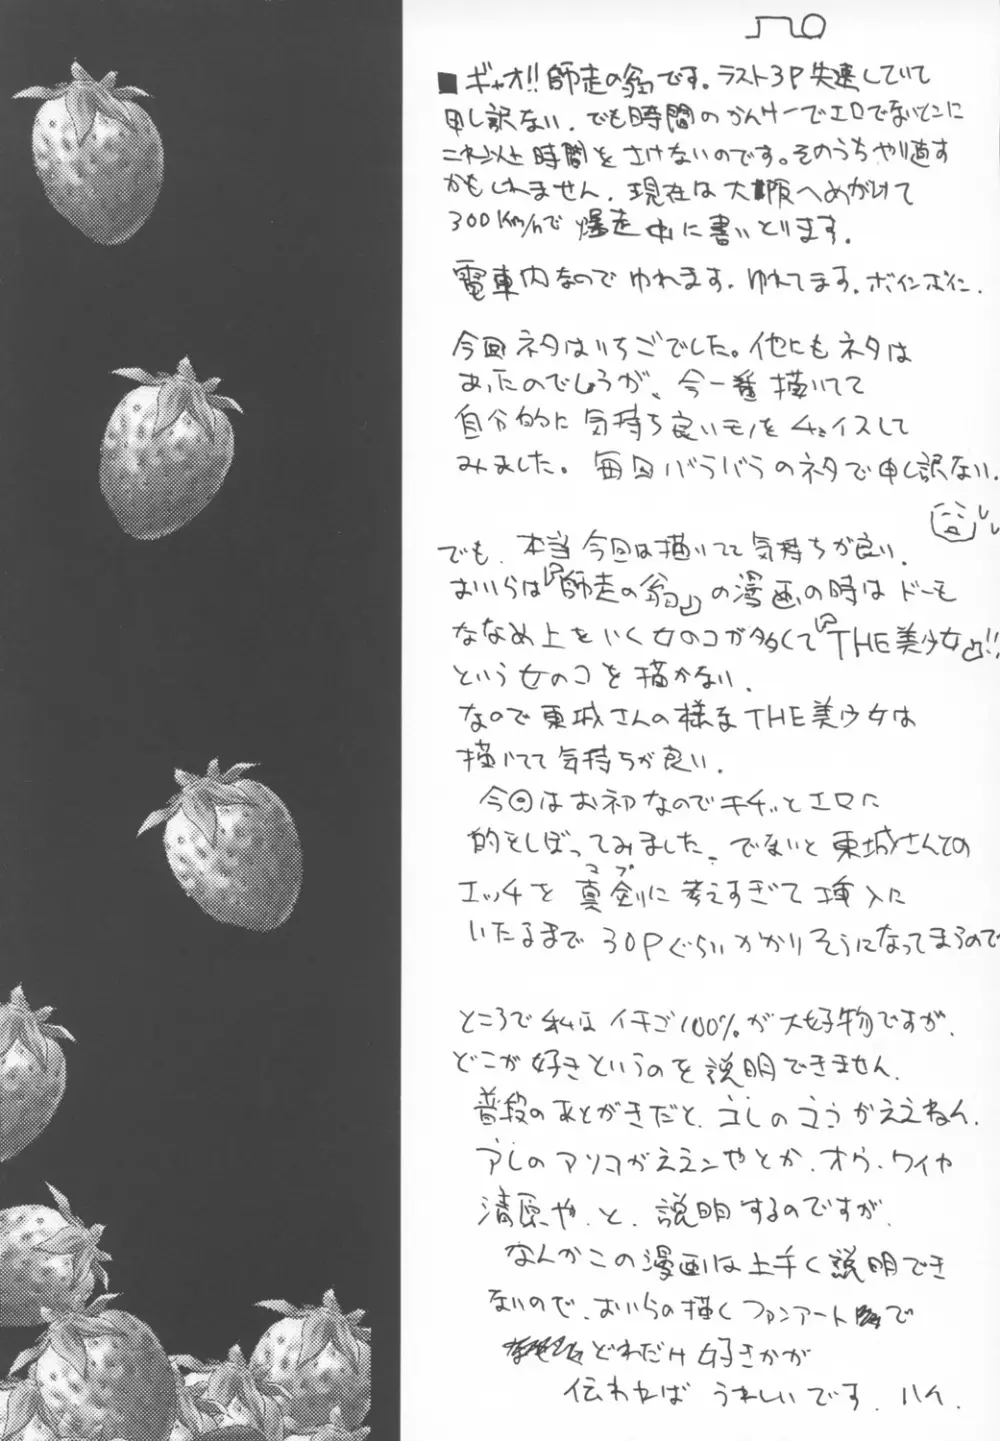 ■ギャオ!!師走の翁です。ラスト3P失速していて
申し訳ない。でも時間のかんけーでエロでないとこに
これ以上時間をさけないのです。そのうちやり直す
かもしれません。現在は大阪へめがけて
300Km/hで爆走中に書いとります。
電車内なのでゆれます。ゆれてます。ボインボイン。
今回ネタはいちごでした。他にもネタは
あったのでしょうが、今一番描いてて
自分的に気持ち良いモノをチョイスして
みました。毎回バラバラのネタで申し訳ない。
でも、本当今回は描いてて気持ちが良い。
おいらは『師走の翁』の漫画の時はドーモ
ななめ上をいく女のコが多くて『THE美少女』!!
という女のコを描かない。
なので東城さんの様なTHE美少女は
描いてて気持ちが良い。
今回はお初なのでキチッとエロに
的をしぼってみました。でないと東城さんての
エッチを真剣に考えすぎて挿入に
マブ
いたるまで30Pぐらいかかりそうになってまうので
ところで私はイチゴ100%が大好物ですが、
どこが好きというのを説明できません。
普段のあとがきだと、コレのココがええねん、
アレのアソコがええンやとか、オウ、ワイや
清原や、と、説明するのですが、
なんかこの漫画は上手く説明でき
ないので、おいらの描くファンアートで
どれだけ好きかが
伝われば うれしいです。ハイ。